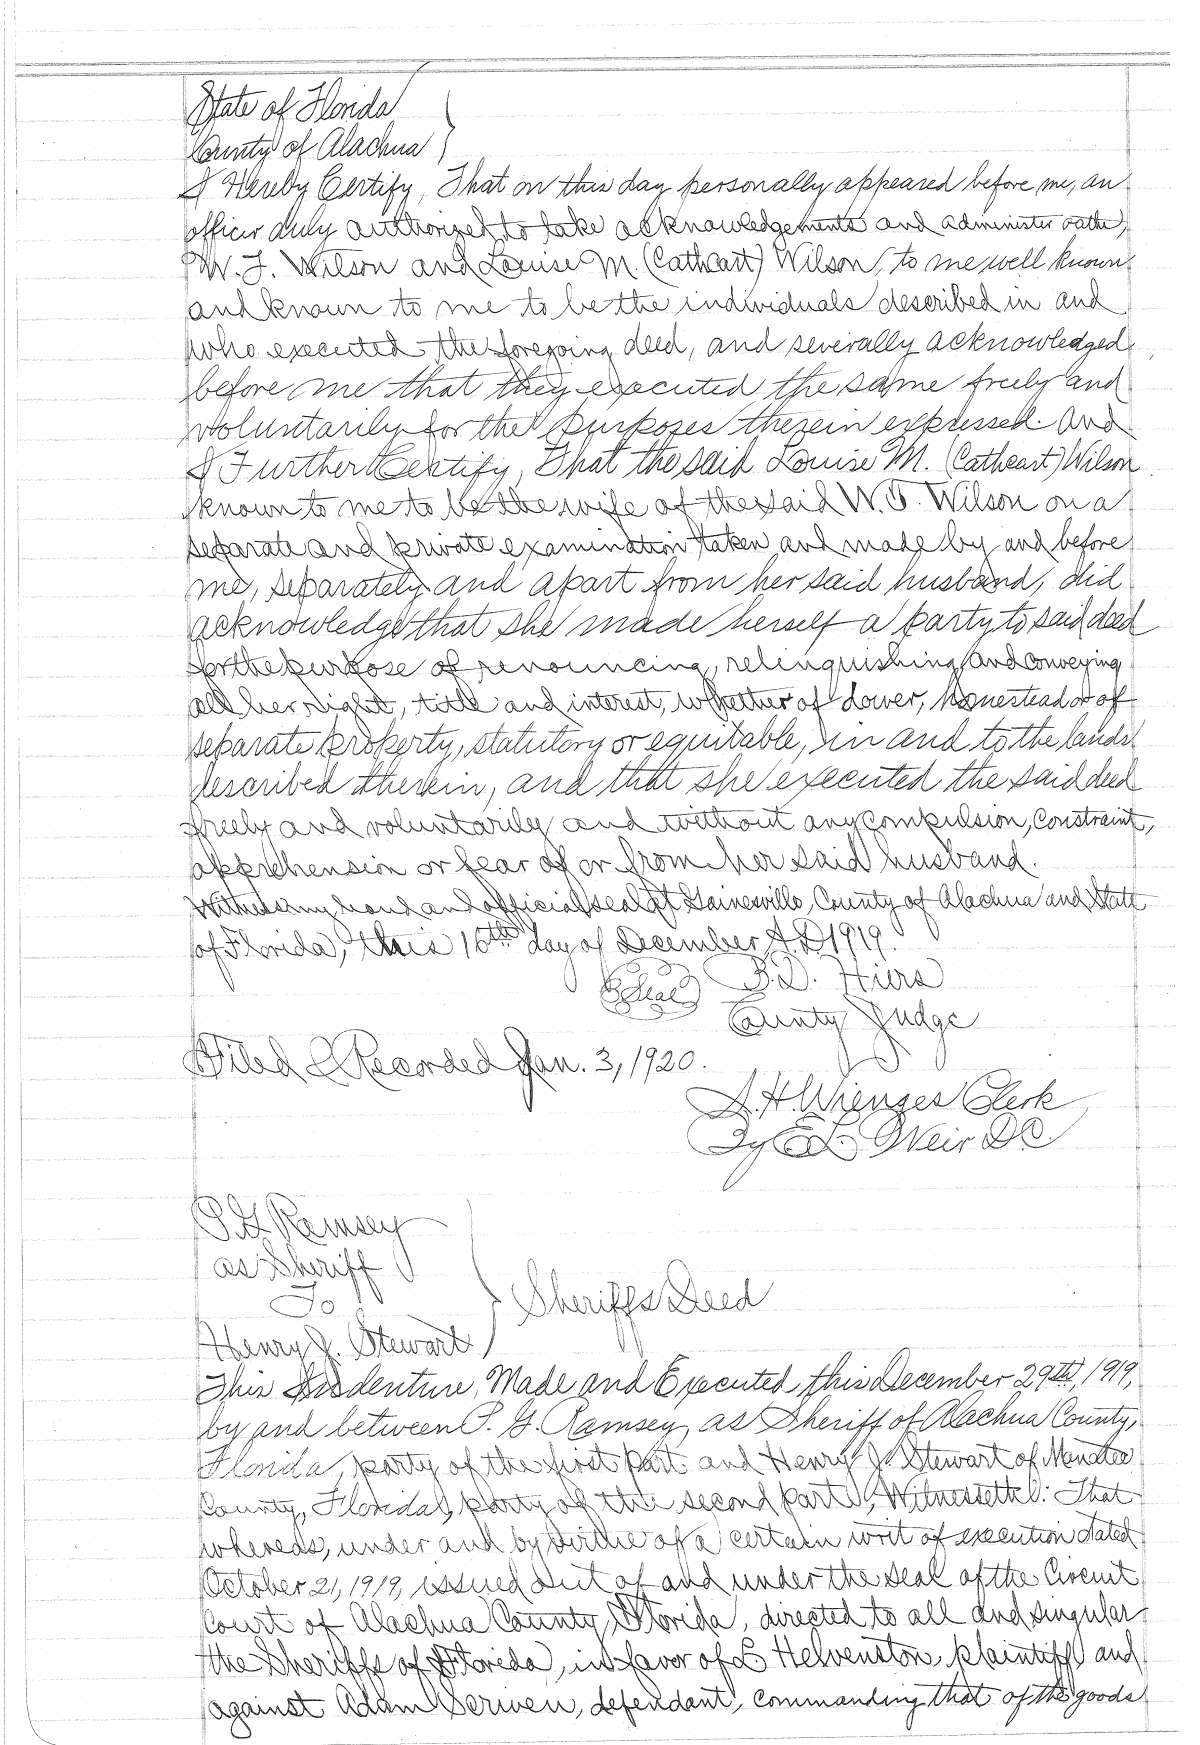 State of Florida
County of Alachua
I Hereby Certify, That on this day personally appeared before me, an
officer duly authorized to take acknowledgements and administer oaths,
W. J. Wilson and Louise M. (Cathcart) Wilson, to me well known
and known to me to be the individuals described in and
who executed the foregoing deed, and severally acknowledged
before me that they executed the same freely and
voluntarily for the purposes therein expressed. And
I Further Certify, That the said Louise M. (Cathcart) Wilson
known to me to be the wife of the said W. J. Wilson on a
separate and private examination taken and made by and before
me, separately and apart from her said husband, did
acknowledge that she made herself a party to said deed
for the purpose of renouncing, relinquishing and conveying
all her right, title and interest, whether of dower, homestead or of
separate property, statutory or equitable, in and to the lands
described therein, and that she executed the said deed
freely and voluntarily and without any compulsion, constraint,
apprehension or fear of or from her said husband.
Witness my hand and official seal at Gainesville, County of Alachua and State
of Florida, this 16th day of December A.D. 1919.
Seal B.D. Hiers
County Judge
Filed & Recorded Jan. 3, 1920.
S. H. Wienges Clerk
By E L Weir D.C.
P. G. Ramsey
as Sheriff
To
Sheriffs Deed
Henry J. Stewart
This Indenture, Made and Executed this December 29th, 1919,
by and between P. G. Ramsey, as Sheriff of Alachua County,
Florida, party of the first part and Henry J. Stewart of Manatee
County, Florida, party of the second part, Witnesseth: That
whereas, under and by virtue of a certain writ of execution dated
October 21, 1919, issued out of and under the seal of the Circuit
Court of Alachua County, Florida, directed to all and singular
the Sheriffs of Florida, in favor of L Helvenston, plaintiff and
against Adam Scriven, defendant, commanding that of the goods